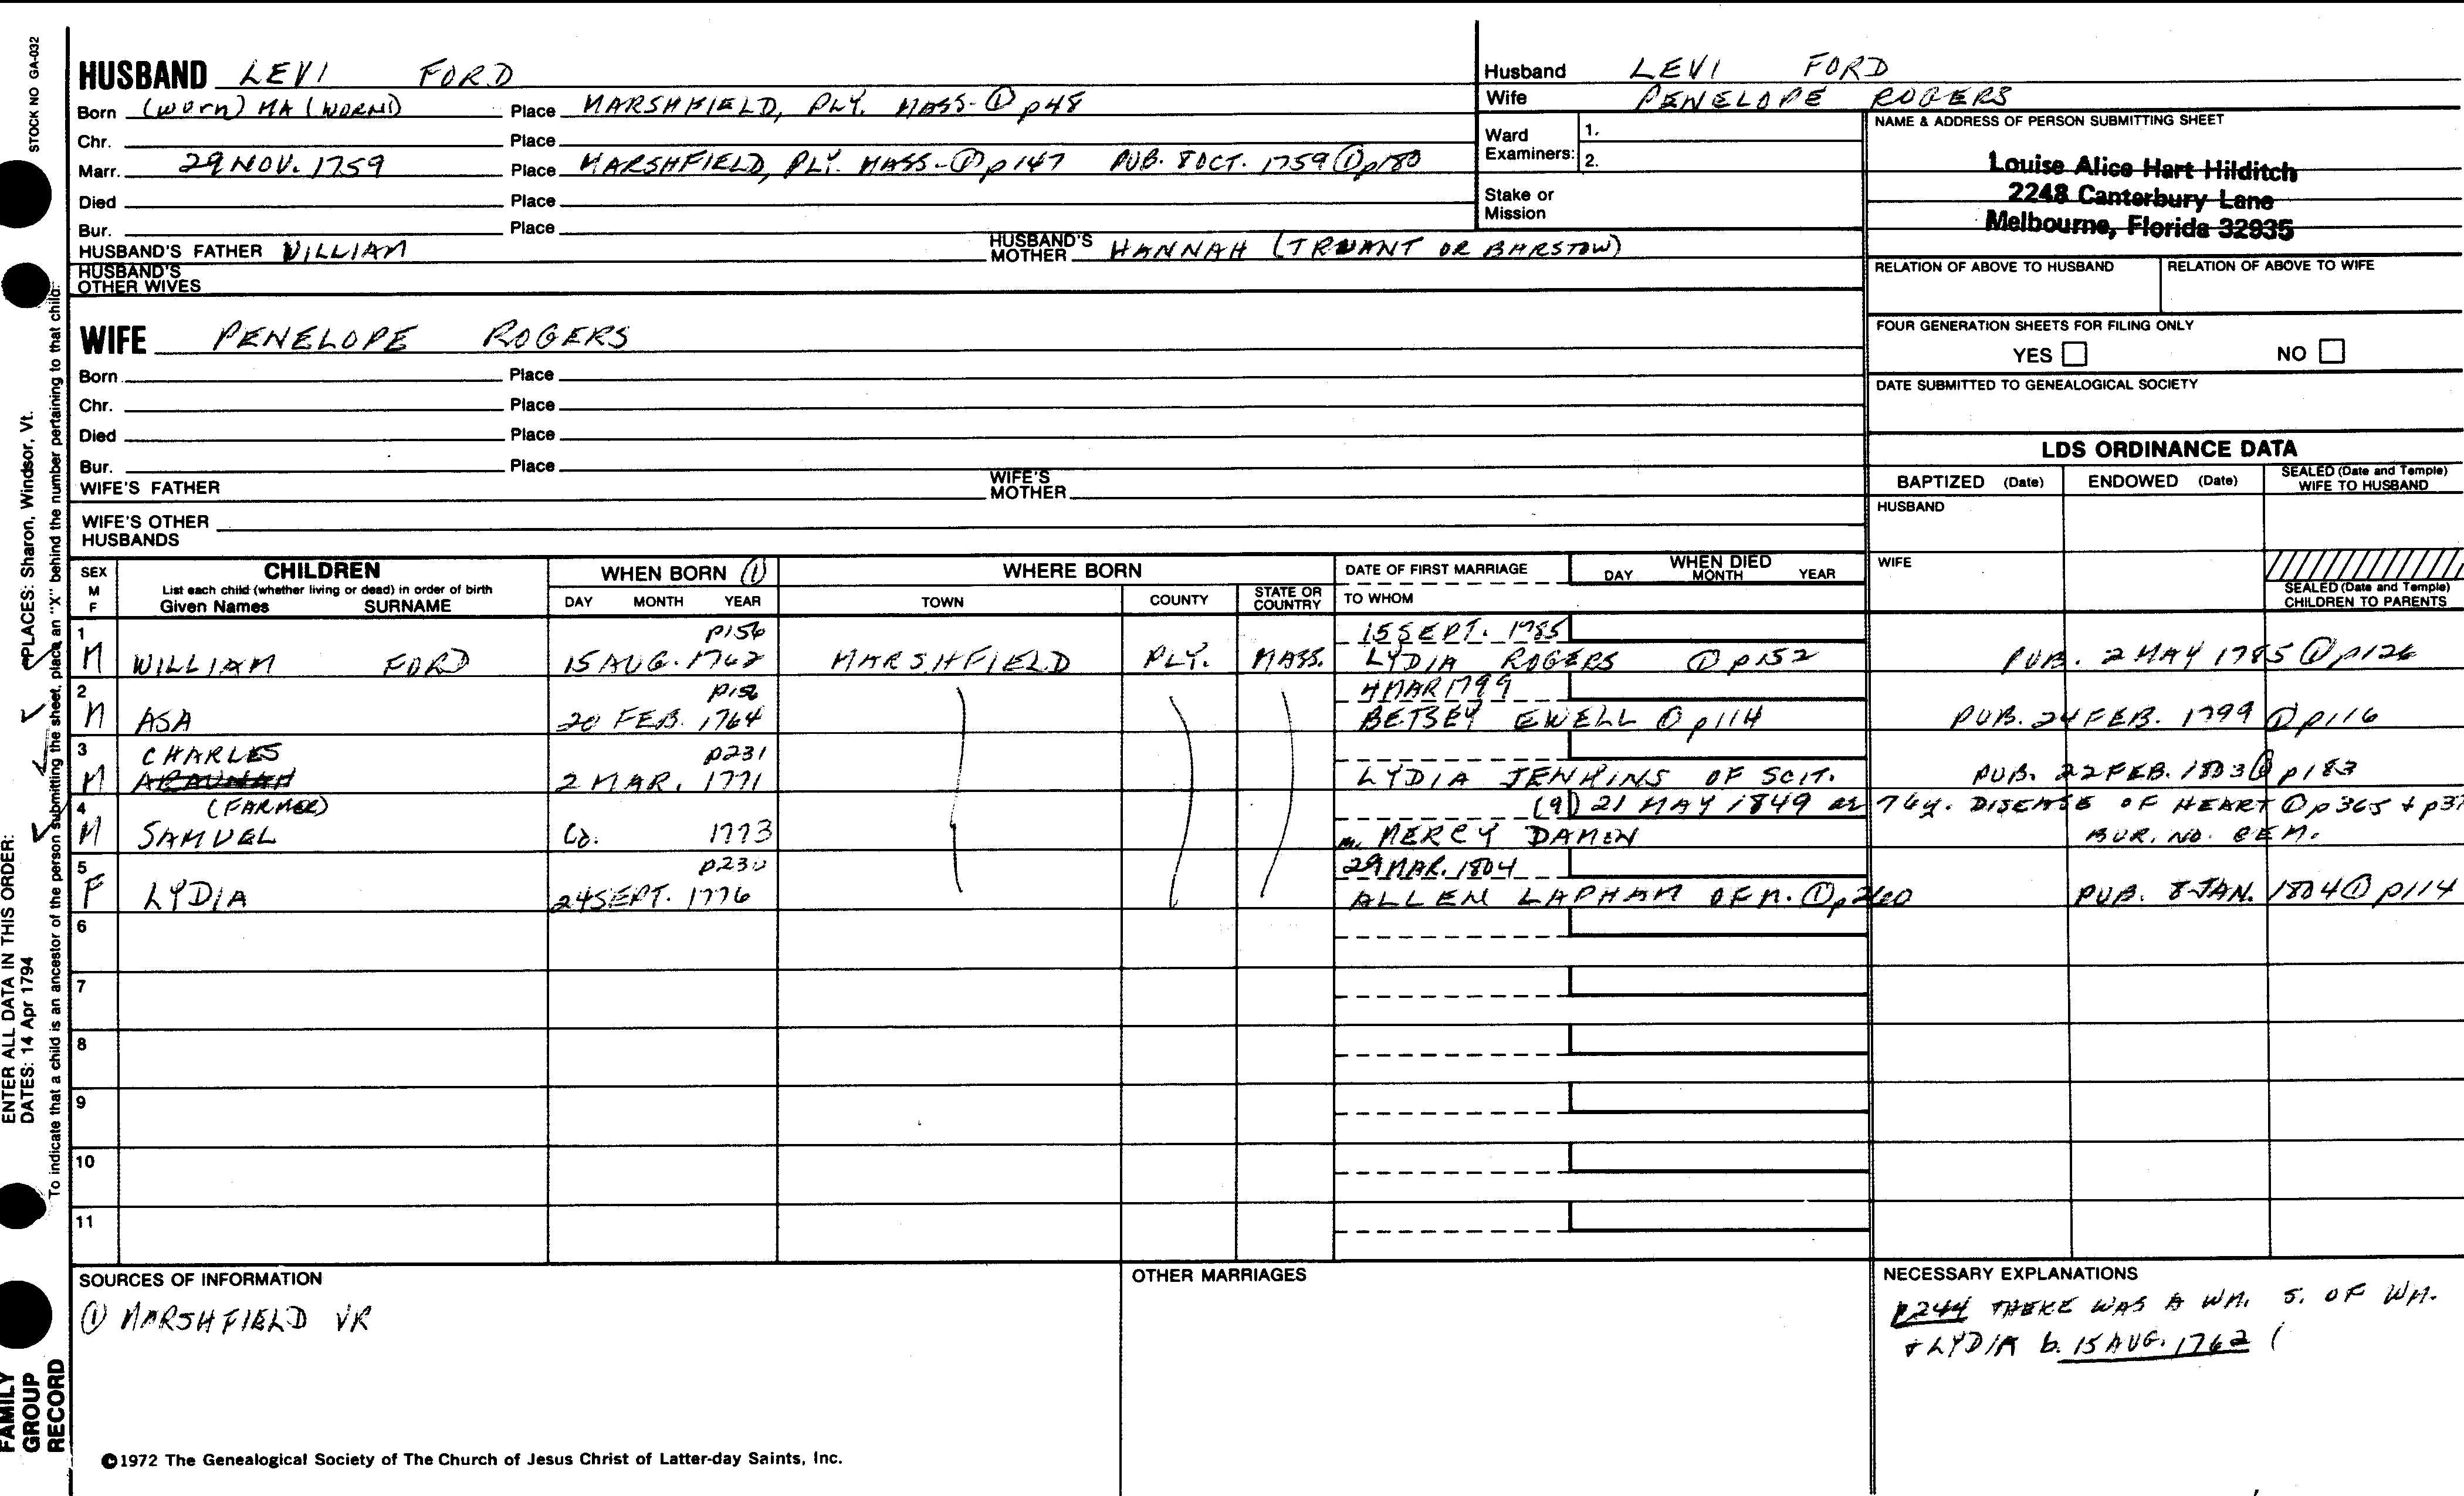 STOCK NO GA-032
HUSBAND LEVI FORD
Born (WORN) MA (WORN) Place MARSHFIELD, PLY. MASS-① p48
Chr. Place
Marr. 29 NOV. 1759 Place MARSHFIELD, PLY. MASS-① p147 PUB. 8 OCT. 1759 ① p180
Died Place
Bur. Place
HUSBAND'S FATHER WILLIAM HUSBAND'S MOTHER HANNAH (TRUANT OR BARSTOW)
HUSBAND'S OTHER WIVES
WIFE PENELOPE ROGERS
Born Place
Chr. Place
Died Place
Bur. Place
WIFE'S FATHER WIFE'S MOTHER
WIFE'S OTHER HUSBANDS
Husband LEVI FORD
Wife PENELOPE ROGERS
Ward Examiners: 1.
2.
Stake or Mission
NAME & ADDRESS OF PERSON SUBMITTING SHEET
Louise Alice Hart Hilditch
2248 Canterbury Lane
Melbourne, Florida 32935
RELATION OF ABOVE TO HUSBAND RELATION OF ABOVE TO WIFE
FOUR GENERATION SHEETS FOR FILING ONLY
YES NO
DATE SUBMITTED TO GENEALOGICAL SOCIETY
LDS ORDINANCE DATA
BAPTIZED (Date) ENDOWED (Date) SEALED (Date and Temple) WIFE TO HUSBAND
HUSBAND
WIFE
SEALED (Date and Temple) CHILDREN TO PARENTS
SEX M F CHILDREN WHEN BORN ① WHERE BORN DATE OF FIRST MARRIAGE WHEN DIED
List each child (whether living or dead) in order of birth
Given Names SURNAME DAY MONTH YEAR TOWN COUNTY STATE OR COUNTRY TO WHOM DAY MONTH YEAR
1 p156 15 SEPT. 1785
M WILLIAM FORD 15 AUG. 1762 MARSHFIELD PLY. MASS. LYDIA ROGERS ① p152 PUB. 2 MAY 1785 ① p126
2 p156 4 MAR 1799
M ASA 20 FEB. 1764 BETSEY EWELL ① p114 PUB. 24 FEB. 1799 ① p116
3 CHARLES p231
M ARAUNAH 2 MAR. 1771 LYDIA JENKINS OF SCIT. PUB. 22 FEB. 1803 ① p183
4 (FARMER) (9) 21 MAY 1849 ae 76y. DISEASE OF HEART ① p365 + p37
M SAMUEL Co. 1773 m. MERCY DAMON BUR. NO. CEM.
5 p230 29 MAR. 1804
F LYDIA 24 SEPT. 1776 ALLEN LAPHAM OF M. ① p260 PUB. 8 JAN. 1804 ① p114
6
7
8
9
10
11
SOURCES OF INFORMATION
① MARSHFIELD VR
OTHER MARRIAGES
NECESSARY EXPLANATIONS
p244 THERE WAS A WM. S. OF WM.
+ LYDIA b. 15 AUG. 1762 (
©1972 The Genealogical Society of The Church of Jesus Christ of Latter-day Saints, Inc.
FAMILY GROUP RECORD
ENTER ALL DATA IN THIS ORDER:
DATES: 14 Apr 1794 PLACES: Sharon, Windsor, Vt.
To indicate that a child is an ancestor of the person submitting the sheet, place an "X" behind the number pertaining to that child: